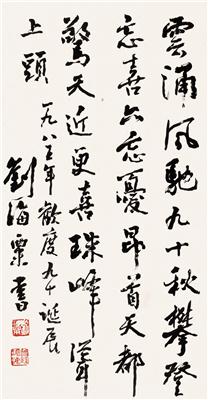 雲涌風馳九十秋攀登
忘喜亦忘憂昂首天都
驚天近更喜珠峰
上頭
一九八五年歡度九十誕辰
劉海粟書